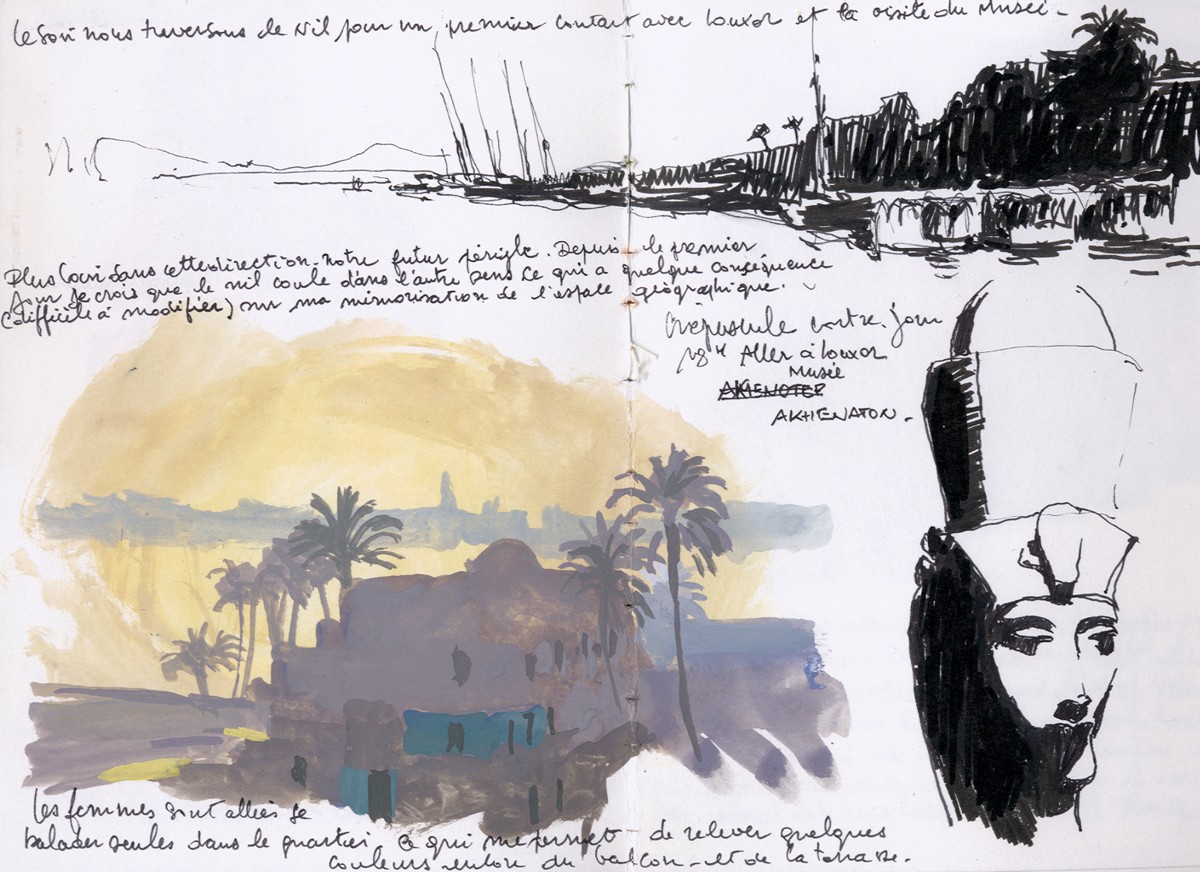 Le soir nous traversons le Nil pour un premier contact avec Louxor et la visite du Musée.
Plus loin dans cette direction notre futur périple. Depuis le premier
jour je crois que le nil coule dans l'autre sens ce qui a quelque conséquence
(difficile à modifier) sur ma mémorisation de l'espace géographique.
Crépuscule contre. jour
18H Aller à Louxor
Musée
AKHENATON.
Les femmes sont allées se
balader seules dans le quartier, ce qui me permet de relever quelques
couleurs enton du balcon - et de la terrasse.